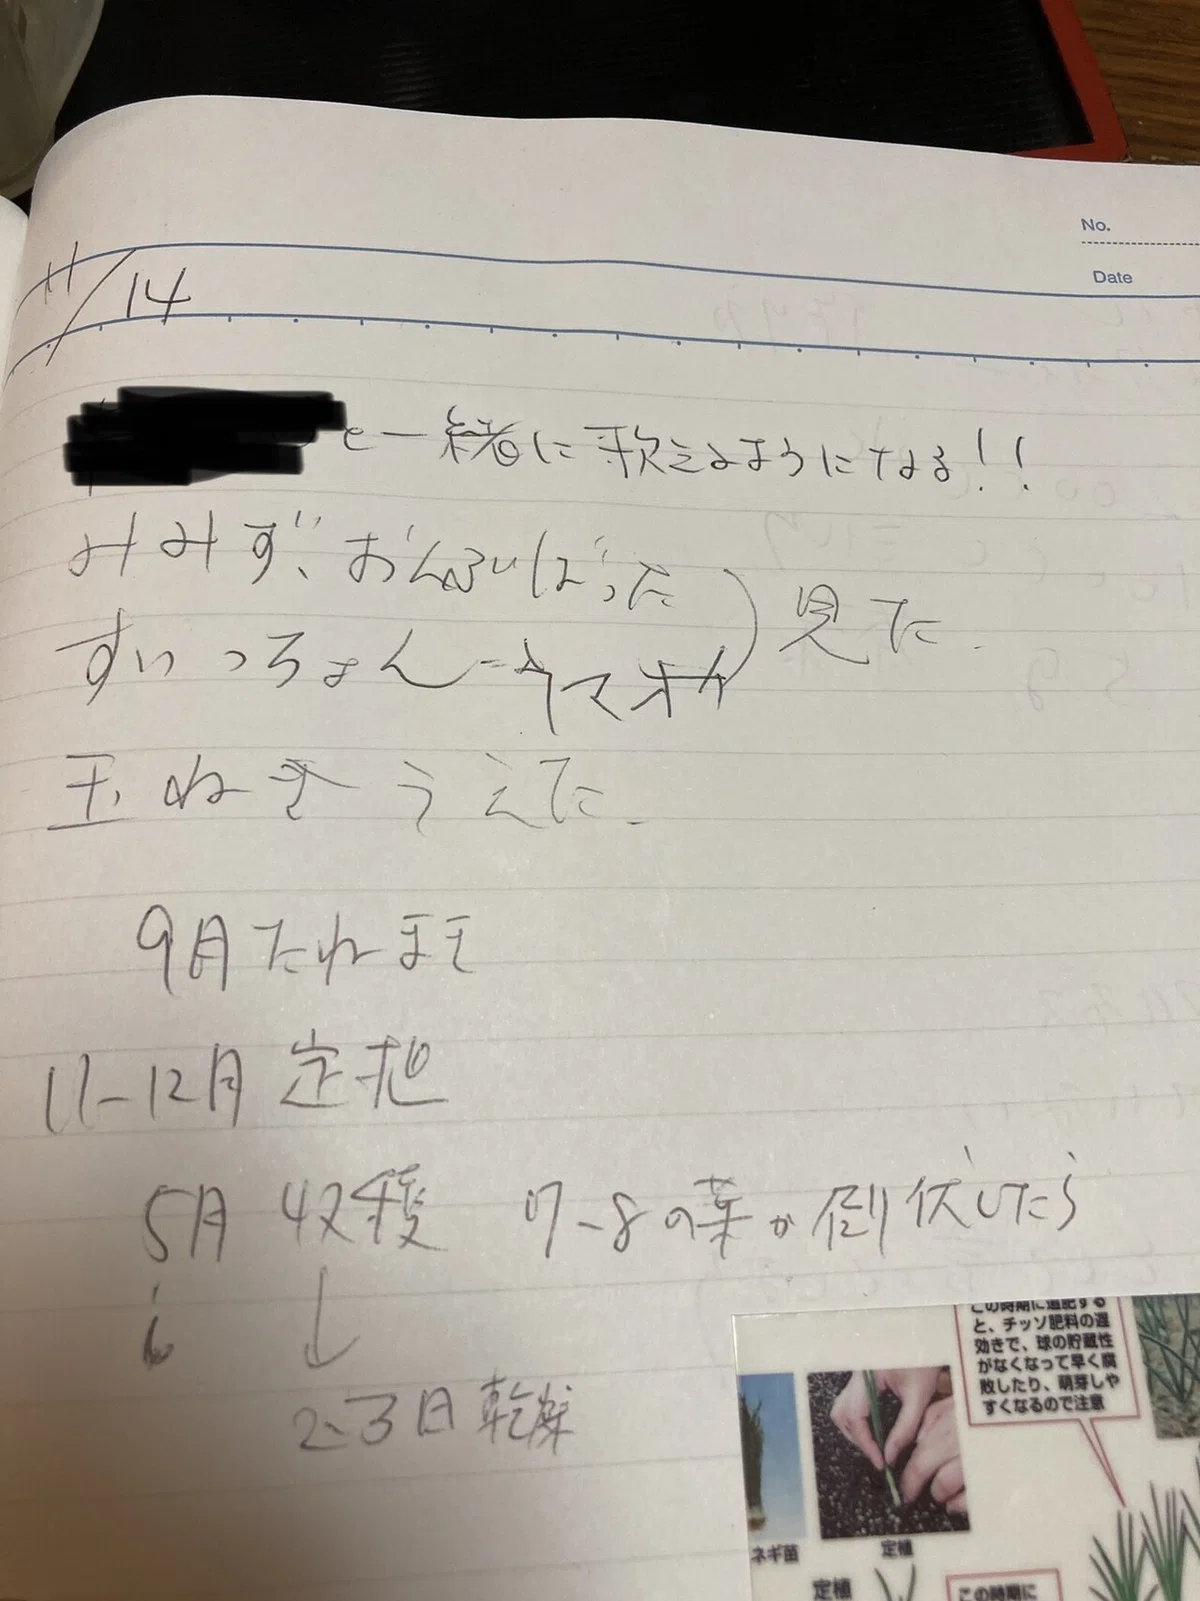 No.
Date
11/14
と一緒に歌えるようになる!!
みみず、おんぶばった
すいっちょん-ヤマオカ)見た.
玉ねぎうえた.
9月たねまき
11-12月 定植
5月 収穫 7-8の葉が倒伏したら
6 ↓
2-3日乾燥
この時期に追肥する
と、チッソ肥料の遅
効きで、球の貯蔵性
がなくなって早く腐
敗したり、萌芽しや
すくなるので注意
ネギ苗
定植
定植
この時期に